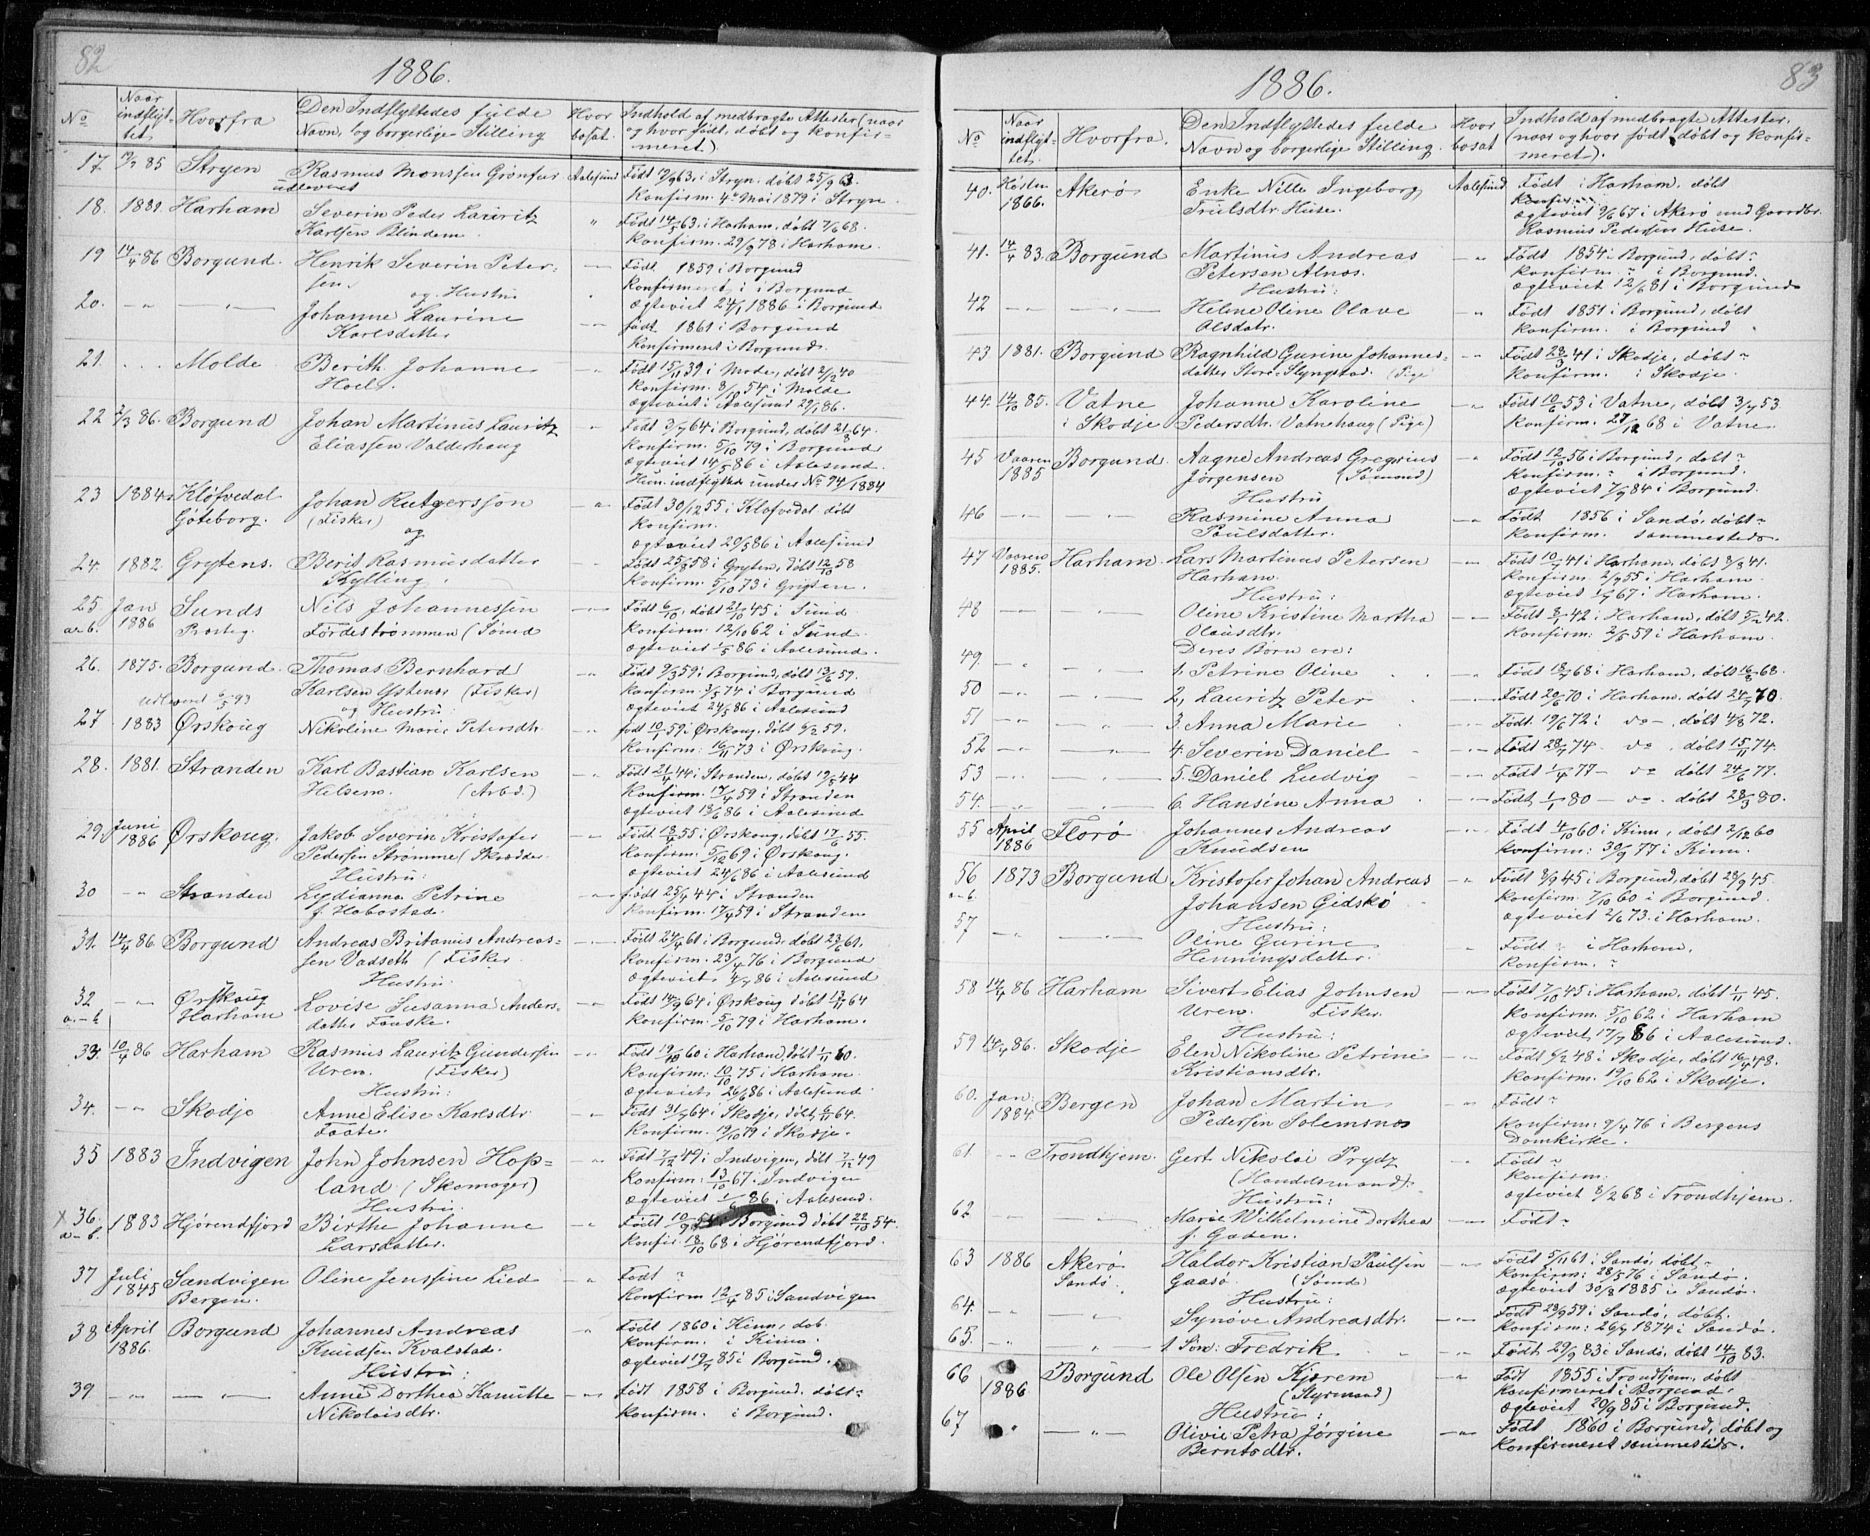 82
1886.
No
Naar indflyt-tet. Hvorfra Den Indflyttedes fulde Navn og borgerlige Stilling Hvor bosat. Indhold af medbragte Attester (naar og hvor født, døbt og konfir-meret).
17 85 Stryen Rasmus Monssen Grønfur Aalesund Født 19/9 63 i Stryn, døbt 25/9 63.
udleveret Konfirm. 4de Mai 1879 i Stryn.
18. 1881. Harham Severin Peder Lauritz " Født 14/5 63 i Harham, døbt 7/6 68.
Karlsen Blindem. Konfirm. 29/9 78 i Harham.
19 14/4 86 Borgund. Henrik Severin Peter- —" Født 1859 i Borgund
sen. og Hustru Konfirmeret i Borgund
20. —"— —"— Johanne Laurine Ægteviet 24/1 1886 i Borgund
Karlsdatter —" født 1861 i Borgund
Konfirmeret i Borgund.
21. . . . Molde. Berith Johanne —" Født 15/11 39 i Mode, døbt 2/2 40
Hoel. Konfirm. 8/10 54 i Molde
Ægteviet i Aalesund 29/1 86.
22 2/3 86. Borgund Johan Martinus Lauritz " Født 3/7 64 i Borgund, døbt 21/8 64.
Eliassen Valderhaug Konfirm. 5/10 79 i Borgund
Ægteviet 14/5 86 i Aalesund.
Hun indflyttede under No 94/1884
23 1884 Kløfvedal Johan Rutgersson —" Født 30/12 55 i Kløfvedal døbt
Göteborg. (Fisker) Konfirm.
og Ægteviet 29/5 86 i Aalesund
24. 1882 Grytens. Berit Rasmusdatter —" Født 25/8 58 i Gryten, døbt 12/10 58
Kylling. Konfirm. 5/10 73 i Gryten.
25 Jan Sunds Nils Johannessen —" Født 6/10, døbt 21/10 45 i Sund
a-b. 1886 Præsteg. Førdestrømmen (Sømd Konfirm. 12/10 62 i Sund.
Ægteviet 1/5 86 i Aalesund.
26. 1875. Borgund. Thomas Bernhard —" Født 9/3 59 i Borgund, døbt 13/6 59.
udleveret 6/5 93 Karlsen Ystenes (Fisker) Konfirm. 3/5 74 i Borgund
og Hustru: Ægteviet 24/5 86 i Aalesund
27 1883 Ørskoug Nikoline Marie Petersdtr. —" født 10/1 59 i Ørskoug, døbt 6/2 59.
Konfirm. 16/11 73 i Ørskoug.
28. 1881. Stranden Karl Bastian Karlsen —" Født 21/4 44 i Stranden, døbt 19/5 44
Helsem. (Arbd.) Konfirm. 17/4 59 i Stranden
Ægteviet 13/6 86 i Aalesund
29. Juni 1886 Ørskoug. Jakob Severin Kristofer —" Født 18/4 55 i Ørskoug, døbt 17/6 55.
Pedersen Strømme (Skrædder Konfirm. 5/12 69 i Ørskoug.
Hustru: Ægteviet 24/6 86 i Aalesund
30 —"— Stranden Lydianna Petrine —" født 25/4 44 i Stranden
f. Habostad. Konfirm. 17/4 59 i Stranden
31. 14/4 86 Borgund Andreas Britanus Andreas- —" Født 24/4 61 i Borgund, døbt 23/6 61.
sen Vadseth (Fisker Konfirm. 23/4 76 i Borgund
Hustru Ægteviet 4/7 86 i Aalesund
32 —"— Ørskoug Lovise Susanna Anders- —" Født 14/9 64 i Ørskoug døbt 13/11 64
a-b Harham datter Fauske. Konfirm. 5/10 79 i Harham.
33. 10/4 86 Harham Rasmus Lauritz Gundersen —" Født 19/10 60 i Harham, døbt 1/11 60.
Urem. (Fisker) Konfirm: 10/10 75 i Harham.
Hustru: Ægteviet 26/6 86 i Aalesund.
34. —"— Skodje Anne Elise Karlsdtr. —" Født 31/7 64 i Skodje, døbt 64.
Faate. Konfirm. 19/10 79 i Skodje.
35 1883 Indvigen John Johnsen Hop- —" Født 7/12 49 i Indvigen, døbt 9/12 49
land (Skomager) Konfirm: 13/10 67. Indvigen
Hustru. Ægteviet 86 i Aalesund.
x 36. 1883 Hjørendfjord Birthe Johanne —" Født 10/9 54 i Borgund døbt 22/10 54.
a-b. Larsdatter. Konfir. 18/10 68 i Hjørendfjord.
37 Juli 1845 Sandvigen Oline Jenssine Lied —" Født "
Bergen. Konfirm 12/4 85 i Sandvigen
38 April 1886. Borgund Johannes Andreas " Født 1860 i Kinn, døb.
Knudsen Kvalstad. Konfirm. i Kinn.
Hustru: Ægteviet 19/7 85 i Borgund.
39 —"— —"— Anne Dorthea Hanutte —" Født 1858 i Borgund, døbt "
Nikolaisdtr. Konfirm. i Borgund.
83
1886.
No Naar indflyt-tet. Hvorfra. Den Indflyttedes fulde Navn og borgerlige Stilling. Hvor bosat Indhold af medbragte Attester. (naar og hvor født, døbt og konfir-meret).
40. Høsten 1866. Akerø Enke Nille Ingeborg Aalesund Født i Harham, døbt
Trulsdtr. Huse. Konfir.
Ægteviet 9/6 67 i Akerø med Gaardbr.
Rasmus Pedersen Huse.
41. 14/4 83. Borgund Martinus Andreas —" Født 1854 i Borgund, døbt "
Petersen Alnæs. Konfirm. " i Borgund.
Hustru: Ægteviet 12/6 81 i Borgund
42 —"— —"— Helene Oline Olave —" Født 1851 i Borgund, døbt
Olsdatr. Konfirm. i Borgund
43 1881. Borgund Ragnhild Gurine Johannes- —" Født 28/3 41 i Skodje, døbt "
datter Store-Slyngstad. (Pige Konfirm. i Skodje.
44. 14/10 85. Vatne Johanne Karoline —" Født 10/6 53 i Vatne, døbt 3/7 53
i Skodje Pedersdtr. Vatnehaug (Pige) Konfirm. 27/12 68 i Vatne.
45 Vaaren 1885 Borgund. Aagne Andreas Gregorius —" Født 12/10 56 i Borgund, døbt "
Jørgensen (Sømand) Konfirm. " i Borgund.
Hustru Ægteviet 7/9 84 i Borgund.
46 —"— —"— Rasmine Anna —" Født 1856 i Sandø, døbt "
Poulsdatter. Konfirm. sammesteds.
47 Vaaren 1885. Harham Lars Martinus Petersen —" Født 10/7 41 i Harham, døbt 8/8 41.
Harham. Konfirm 2/9 55 i Harham.
Hustru: Ægteviet 1/7 67 i Harham.
48 —"— —"— Oline Kristine Martha —" Født 8/1 42 i Harham, døbt 5/2 42.
Olausdtr. Konfirm: 2/6 59 i Harham.
Deres Børn ere:
49. —" " 1. Petrine Oline . . Født 18/7 68 i Harham, døbt 16/8 68.
50 —" " 2, Lauritz Peter . - Født 20/6 70 i Harham, døbt 24/7 70.
51 —" " 3. Anna Marie . Født 19/6 72 i do , døbt 4/8 72.
52 —" " 4. Severin Daniel - Født 28/7 74 do . døbt 15/11 74.
53 —" " 5. Daniel Ludvig - Født 1/4 77 - do døbt 24/6 77.
54. —" " 6. Hansine Anna . Født 1/1 80 - do . døbt 28/3 80.
55 April 1886 Florø Johannes Andreas —" Født 4/10 60 i Kinn, døbt 2/12 60
Knudsen Konfirm: 30/9 77 i Kinn.
56 1873 Borgund Kristofer Johan Andreas " Født 8/9 45 i Borgund, døbt 28/9 45.
a-b. Johansen Gidskø Konfirm. 7/10 60 i Borgund.
Hustru: Ægteviet 2/6 73. i Harham.
57 —"— —"— Oline Gurine " Født " i Harham.
Henningsdatter. Konfirm. "
58 14/4 86 Harham Sivert Elias Johnsen —" Født 7/10 45 i Harham, døbt 1/11 45.
Urem. Fisker. Konfirm. 5/10 62 i Harham
Hustru: Ægteviet 17/7 86 i Aalesund.
59 14/4 86. Skodje Elen Nikoline Petrine —" Født 6/2 48 i Skodje, døbt 16/4 48.
Kristiansdtr. Konfirm. 19/10 62 i Skodje.
60. Jan: 1884 Bergen Johan Martin —" Født "
Pedersen Solemsnes Konfirm: 9/4 76 i Bergens
Domkirke.
61 —" Trondhjem. Gert Nikolai Prydz —" Født "
(Handelsmand). Konfirm.
Hustru: Ægteviet 8/2 68 i Trondhjem.
62 " Marie Wilhelmine Dorthea —" Født "
f. Gaden.
63 1886 Akerø Haldor Kristian Paulsen —" Født 5/11 61 i Sandø, døbt "
Sandø. Gaasø (Sømd) Konfirm: 28/5 76 i Sandø.
Hustru: Ægteviet 30/8 1885 i Sandø.
64. —" " Synøve Andreasdtr. —" Født 23/9 59 i Sandø, døbt.
Konfirm: 26/7 1874 i Sandø.
65. —" " 1 Søn: Fredrik " Født 29/9 83 i Sandø, døbt 14/10 83.
66 1886 Borgund Ole Olsen Kjørem " Født 1855 i Trondhjem, døbt
(Styrmand) Konfirmeret i Borgund.
Hustru: Ægteviet 20/9 85 i Borgund.
67 " —"— Olivie Petra Jørgine —" Født 1860 i Borgund, døbt og
Berntsdtr. Konfirmeret sammesteds.